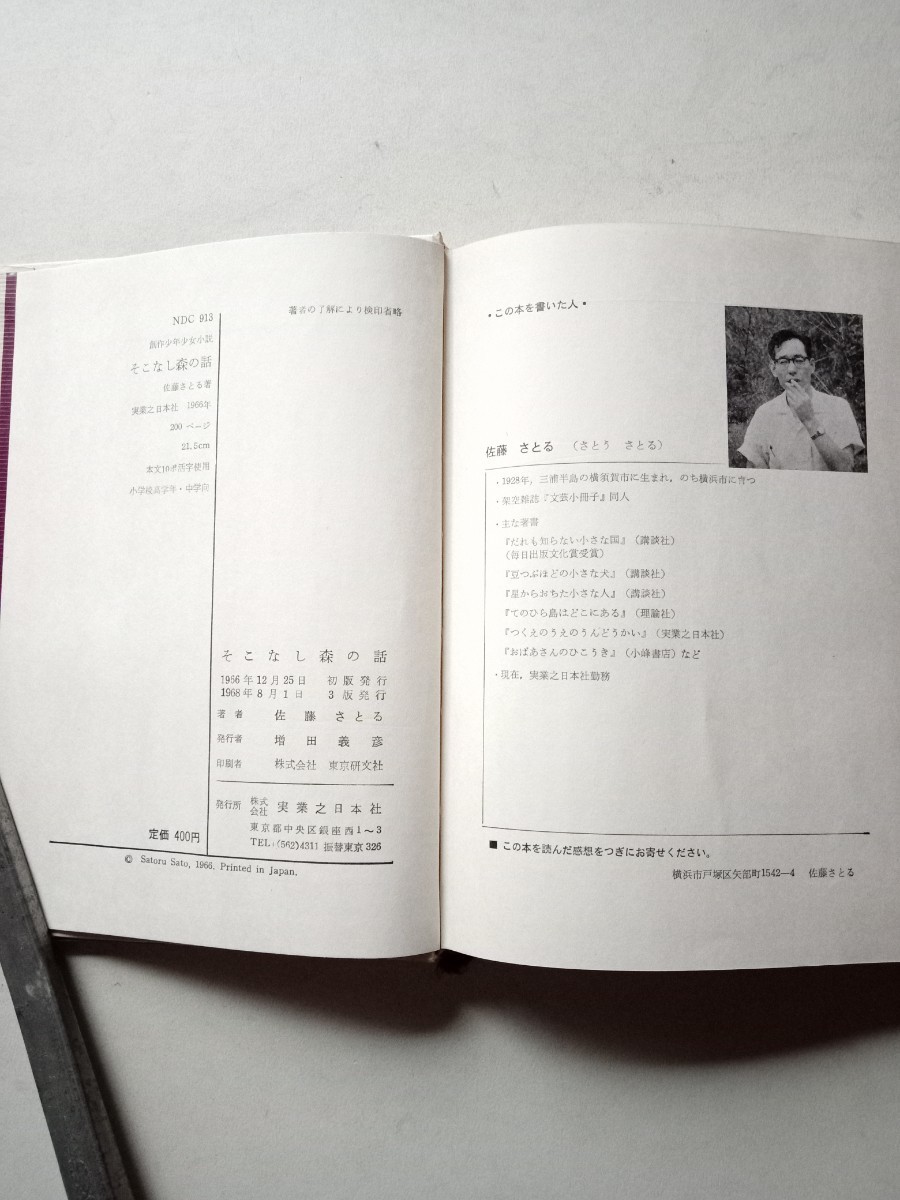 著者の了解により検印省略
NDC 913
創作少年少女小説
そこなし森の話
佐藤さとる著
実業之日本社 1966年
200 ページ
21.5cm
本文10ポ活字使用
小学校高学年・中学向
そこなし森の話
1966年12月25日 初版発行
1968年8月1日 3版発行
著者 佐藤さとる
発行者 増田義彦
印刷者 株式会社 東京研文社
発行所 株式会社 実業之日本社
東京都中央区銀座西1〜3
TEL・(562)4311 振替東京326
定価 400円
© Satoru Sato, 1966. Printed in Japan.
・この本を書いた人・
佐藤 さとる （さとう さとる）
・1928年，三浦半島の横須賀市に生まれ，のち横浜市に育つ
・架空雑誌『文芸小冊子』同人
・主な著書
『だれも知らない小さな国』（講談社）
（毎日出版文化賞受賞）
『豆つぶほどの小さな犬』（講談社）
『星からおちた小さな人』（講談社）
『てのひら島はどこにある』（理論社）
『つくえのうえのうんどうかい』（実業之日本社）
『おばあさんのひこうき』（小峰書店）など
・現在，実業之日本社勤務
■ この本を読んだ感想をつぎにお寄せください。
横浜市戸塚区矢部町1542—4 佐藤さとる